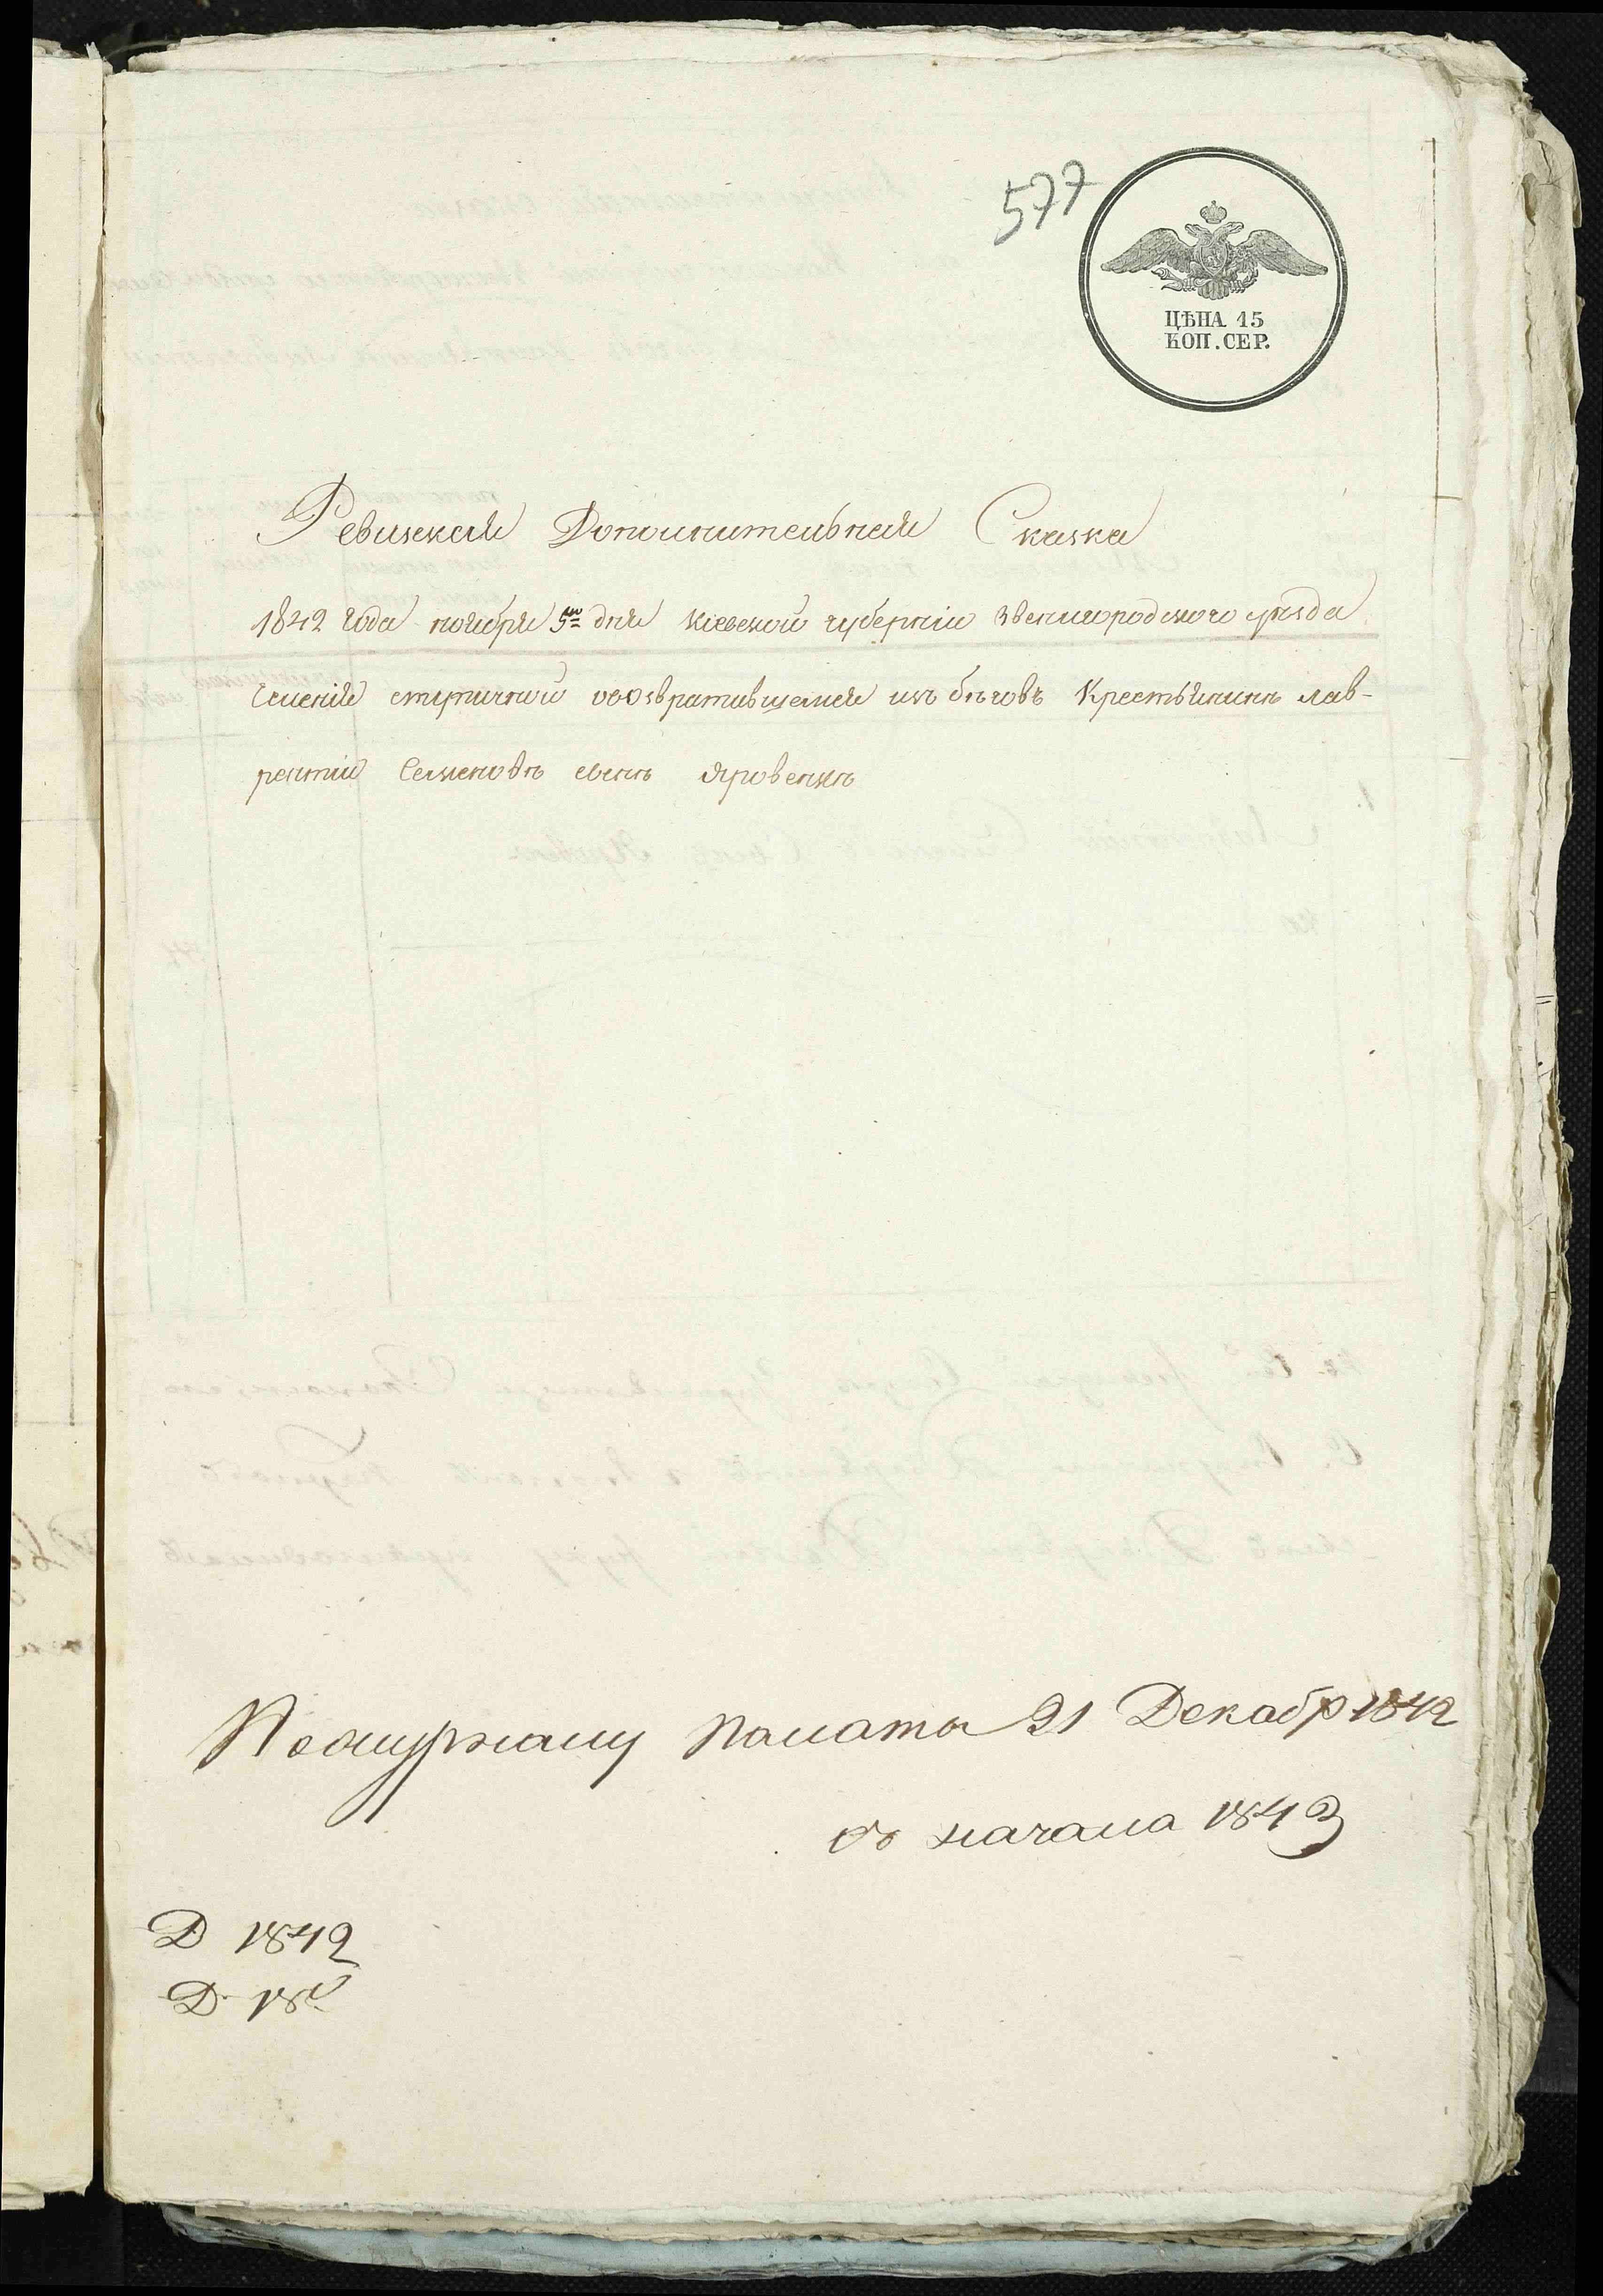 577
ЦѢНА 15
КОП. СЕР.
Ревизская Дополнительная Сказка
1842 года ноября 5го дня Кіевской губерніи Звенигородского уѣзда
Селенія ступичной о возвратившемся изъ бѣговъ Крестьянинѣ лав-
рентіи Семеновѣ сынѣ Яровенкѣ
По журналу Палаты 31 Декабр 1842
съ начала 1843
Д 1842